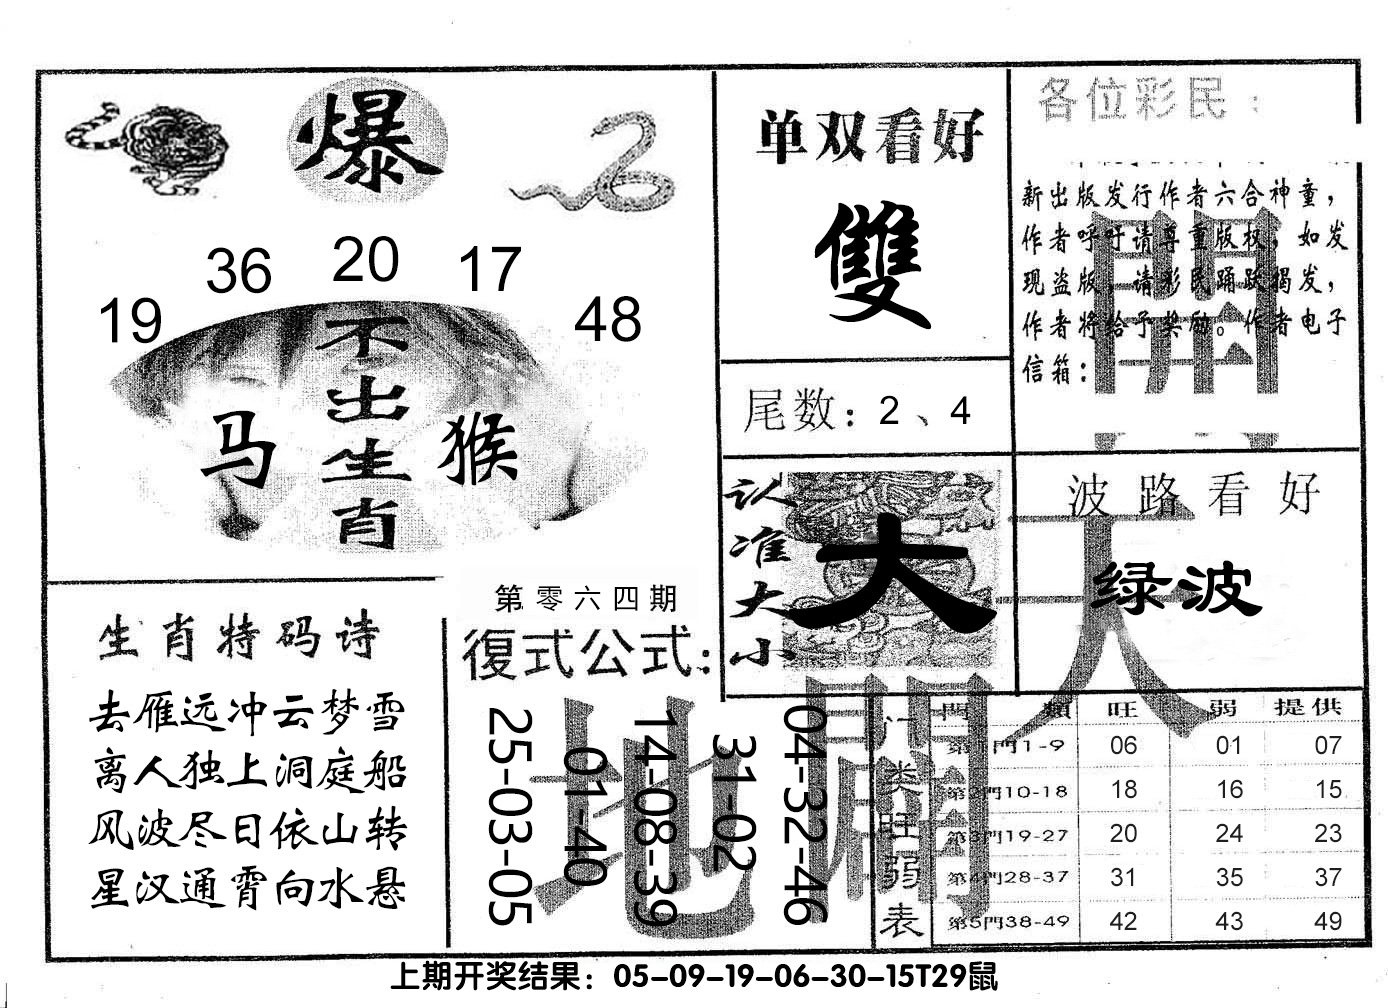 爆
19 36 20 17 48
不出生肖
马 猴
单双看好
雙
尾数：2、4
认准大小
大
各位彩民：
新出版发行作者六合神童，
作者呼吁请尊重版权，如发
现盗版，请彩民踊跃揭发，
作者将给予奖励。作者电子
信箱：
波路看好
绿波
天
開
地
開
生肖特码诗
去雁远冲云梦雪
离人独上洞庭船
风波尽日依山转
星汉通霄向水悬
第零六四期
復式公式：
25-03-05
01-40
14-08-39
31-02
04-32-46
门类旺弱表
門類 旺 弱 提供
第1門1-9 06 01 07
第2門10-18 18 16 15
第3門19-27 20 24 23
第4門28-37 31 35 37
第5門38-49 42 43 49
上期开奖结果：05-09-19-06-30-15T29鼠